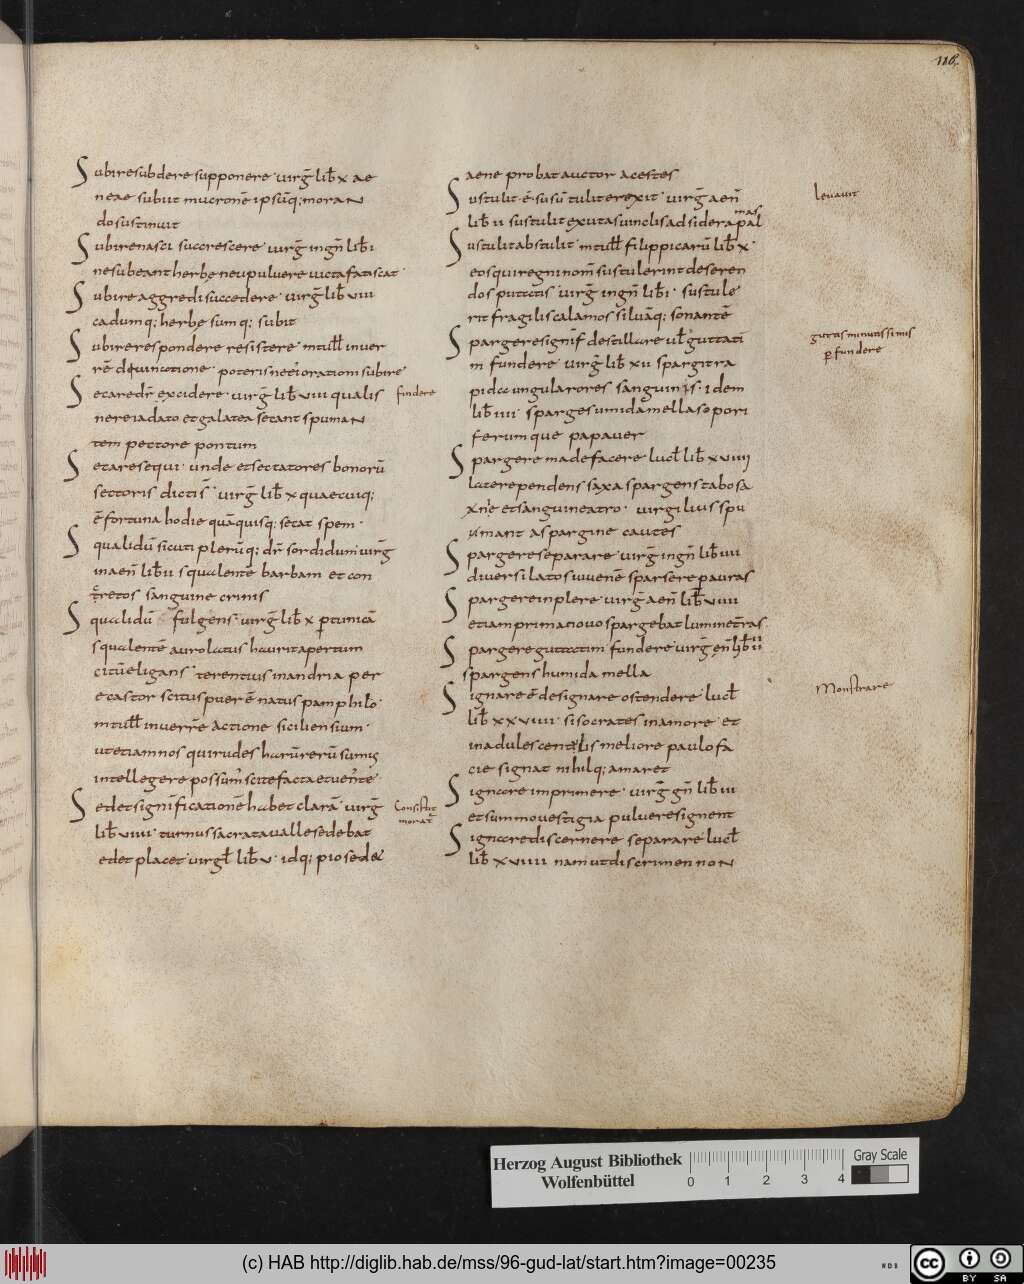 116.
Subire subdere supponere virg̅ lib̅ x ae
neae subiit mucrone̅ ipsu̅q; moran
do sustinuit
Subire nasci succrescere virg̅ in gn̅ lib̅ i
ne subeant herbe neu pulvere victa fatiscat
Subire aggredi succedere virg̅ lib̅ viii
cadumq; herbe sumq; subit
Subire respondere resistere m tull̅ in ver
re̅ divinctione poteris ne eī orationi subire
Secare dr̅ excidere virg̅ lib̅ viii qualis
fundere
nereia dato et galatea secant spuman
tem pectore pontum
Secare sequi unde et sectatores bonoru̅
sectoris dictis̅ virg̅ lib̅ x quae cuiq;
e̅ fortuna hodie qua̅ quisq; secat spem
Squalidu̅ sicuti pleru̅q; dr̅ sordidum virg̅
in aen̅ lib̅ ii squalente̅ barbam et con
cretos sanguine crinis
Squalidu̅ fulgens virg̅ lib̅ x p tunica̅
squalente̅ auro latus haurit apertum
Scitu̅ eligans terentius in andria per
ecastor scitus puer e̅ natus pamphilo
m tull̅ in verre̅ actione siciliensium
ut etiam nos qui rudes haru̅ reru̅ sumus
intellegere possum̅ scite facta et uen̅te
Sedet significatione̅ habet clara̅ virg̅
Constat
morat̅
lib̅ viiii turnus sacrata valle sedebat
Sedet placet virgl̅ lib̅ v idq; pio sedet
aene probat auctor acestes
Sustulit e̅ susu̅ tulit erexit virg̅ aen̅
levavit
lib̅ ii sustulit exutas vinclis ad sidera pal
mas
Sustulit abstulit m tull̅ filippicaru̅ lib̅ x
eos qui regni nom̅ sustulerint deseren
dos putatis virg̅ in gn̅ lib̅ i sustule
rit fragilis calamos silua̅q; sonante̅
Spargere signif̅ destillare ul̅ guttati
guttas minutissimis
p fundere
m fundere virg̅ lib̅ xii spargit ra
pida ungula rores sanguineus idem
lib̅ iiii sparges umida mella sopori
ferumque papaver
Spargere madefacere lucl̅ lib̅ xviiii
latere pendens saxa spargens tabo sa
xn̅e et sanguine atro virgilius spu
mant aspargine cautes
Spargere separare virg̅ in gn̅ lib̅ iiii
diversi latos iuvene̅ sparsere pavras
Spargere inplere virg̅ aen̅ lib̅ viiii
etiam prima novo spargebat lumine t̅ras
Spargere guttatim fundere virg̅ en̅ lib̅ iiii
spargens humida mella
Signare e̅ designare ostendere lucl̅
Monstrare
lib̅ xxviiii si socrates in amore et
in adulescentulis meliore paulo fa
cie signat nihil q; amaret
Signare imprimere virg̅ gn̅ lib̅ iii
et summo vestigia pulvere signent
Signare discernere separare lucl̅
lib̅ xviiii nam ut discrimen non
Herzog August Bibliothek
Wolfenbüttel
0 1 2 3 4
Gray Scale
(c) HAB http://diglib.hab.de/mss/96-gud-lat/start.htm?image=00235
WDB
cc BY SA